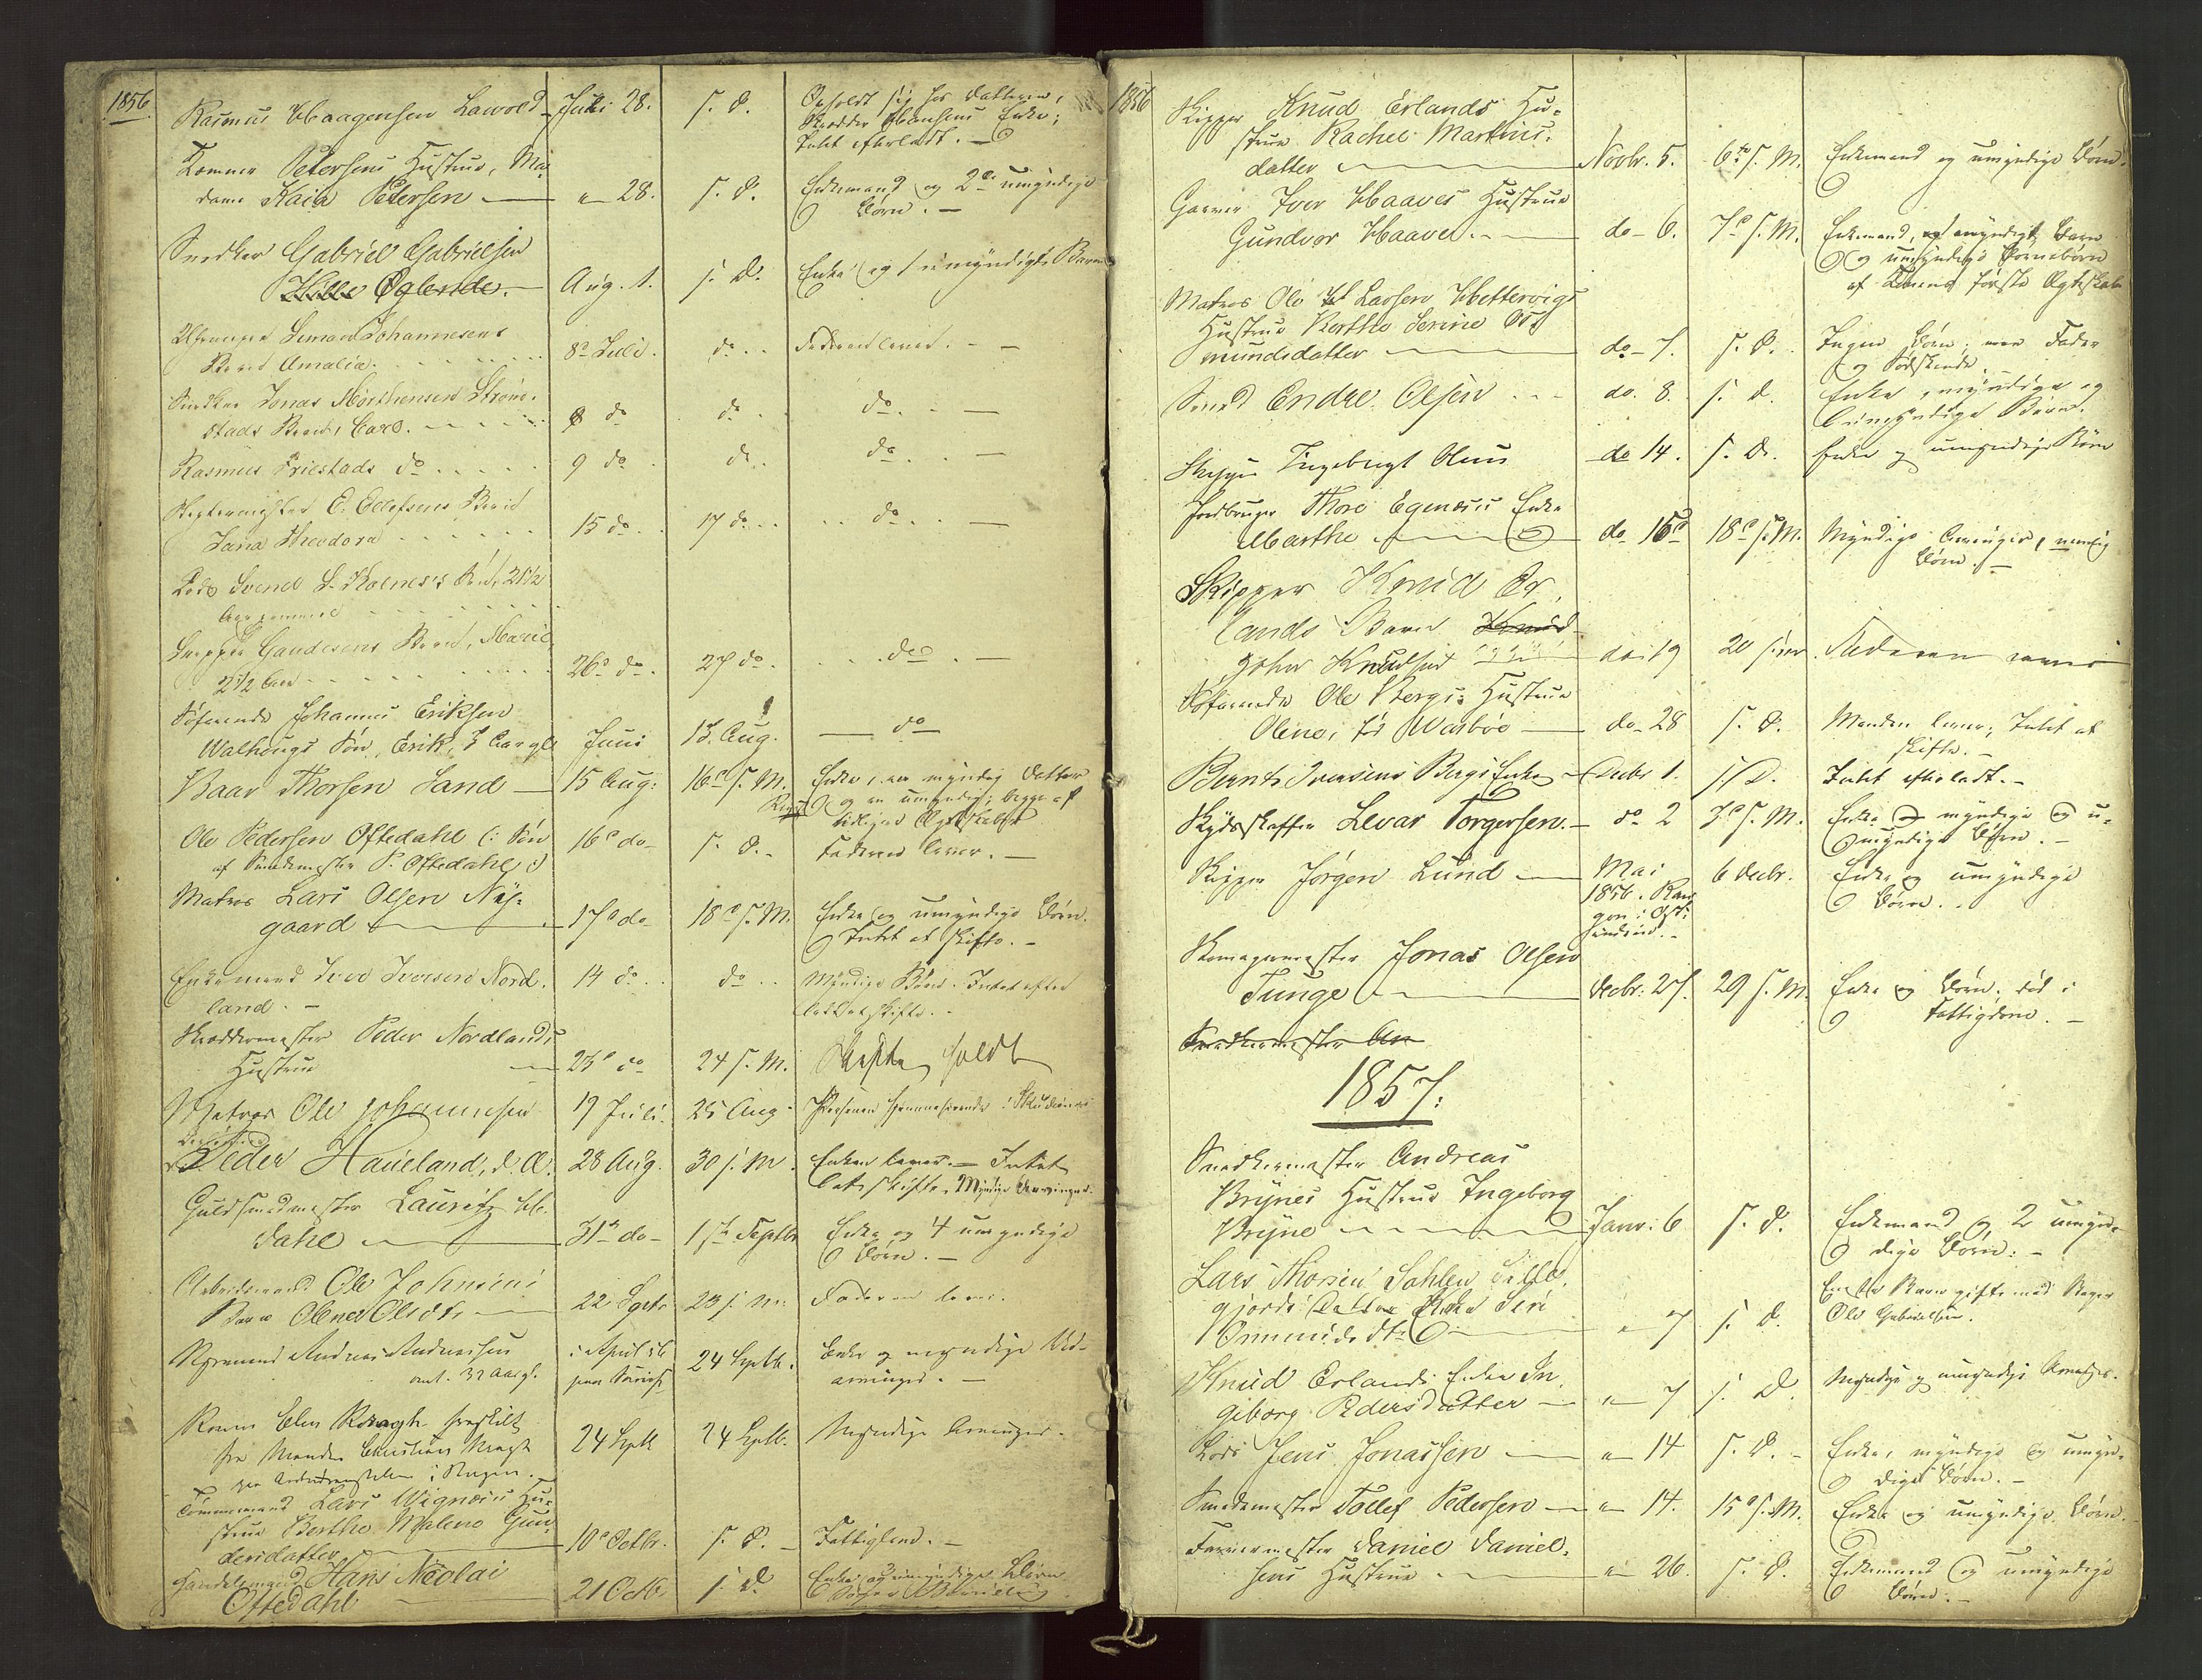 1856.
Rasmus Haagensen Lawold - Juli 28. s. D. Opholdt sig hos Datteren,
Skrædder Hansens Enke;
Intet efterladt. -
Petersens Hustrue, Ma-
dame Kaia Petersen - " 28. s. D. Enkemand og 2de umyndige
Børn. -
Snedker Gabriel Gabrielsen
Oglende. - Aug. 1. s. D. Enke og 1 umyndigt Barn
Simon Johannesens
Barn Amalia. 8de Juli. do Faderen lever. -
Snedker Jonas Morthensens Strøm-
stads Barn, Carl. 8 do do do -
Rasmus Friestads do 9 do do do -
E. Ellefsens Barn
Jana Theodora 15 do 17 do do -
Lods Svend S. Holmes's
Gaudesens Barn, Marie
2 1/2 Aar 26de do 27 do do -
Søfarende Johannes Eriksen
Walhougs Søn, Erik, Juni 13. Aug. do
Baar Thorsen Sand - 15 Aug: 16de s. M. Enke, en myndig Datter
og en umyndig; begge af
tidligere Ægteskab
Ole Pedersen Oftedahl (: Søn
af P. Oftedahl :) 16de do s. D. Faderen lever. -
Matros Lars Olsen Ny-
gaard 17de do 18de s. M. Enke og umyndige Børn.
Intet at skifte. -
Enkemand Iver Iversen Nord-
land. - 14 do do Myndige Børn. Intet efter-
ladt at skifte. -
Skræddermester Peder Nordlands
Hustrue 23de do 24 s. M. Skifte holdt
Matros Ole Johannesen 19 Juli. 25 Aug.
Peder Haueland, d. Æ. 28 Aug. 30 s. M. Enken lever. - Intet
at skifte. Myndige Arvinger.
Guldsmedmester Lauritz
Dahl 31te do 1ste Septbr Enke og 4 umyndige
Børn. -
Arbeidsmand Ole Johnsens
Barn Olene Olsdtr 22 Sept. 23 s. M. Faderen lever.
Styrmand Andreas Andreassen
omt. 32 Aar gl. i April 56 24 Septb. Enke og myndige Ud-
arvinger. -
Konen Elen Kragh fraskilt
fra Manden Christian Kragh
24 Septb 24 Septb. Myndige Arvinger.
Tømmermand Lars Wignæss Hu-
strue Berthe Malene Gun-
dersdatter 10de Octbr. s. D. - Fattiglem. -
Handelsmand Hans Nicolai
Oftedahl 21 Octb. s. D. Enke og umyndige Børn
1856
Skipper Knud Erlands Hu-
strue Rachel Martins-
datter Novbr. 5. 6te s. M. Enkemand og umyndige Børn.
Garver Iver Haaves Hustrue
Gundvor Haave. - do - 6. 7de s. M. Enkemand, umyndigt Barn
og umyndige Børnebørn
af Konens første Ægteskab
Matros Ole Larsen Hettervigs
Hustrue Berthe Serine Os-
mundsdatter do - 7. s. D. Ingen Børn; men Fader
og Sødskende. -
Smed Endre Olsen do. 8. s. D. Enke, myndige og
umyndige Børn.
Skipper Ingebrigt Olsen do 14. s. D. Enke og umyndige Børn
Jordbruger Thore Egenæss Enke
Marthe do 16de 18de s. M. Myndige Arvinger, nemlig
Børn. -
Skipper Knud Er-
lands Barn
John Knudsen do: 19 20 s. M. Faderen lever
Søfarende Ole Bergs Hustrue
Olene, fød Warbøe do - 28 s. D. Manden lever; Intet at
skifte. -
Bernts Iversens Bergs Enke - Decbr 1. s. D. Intet efterladt. -
Skydsskaffer Levar Torgersen. - do 2 3de s. M. Enke myndige og u-
myndige Børn. -
Skipper Jørgen Lund - Mai
1856. Ran-
gon i Ost-
indien. - 6 Decbr. Enke og umyndige
Børn.
Skomagermester Jonas Olsen
Tunge Decbr: 27. 29 s. M. Enke og Børn; død i
Fattigdom. -
Snedkermester An
1857.
Snedkermester Andreas
Brynes Hustrue Ingeborg
Bryne Janr: 6 s. D. Enkemand og 2 umyn-
dige Børn: -
Lars Thorsen Sahlen Lille-
gjords Enke Siri
Ommundsdtr " 7 s. D. Eneste Barn gift med Bager
Ole Gabrielsen.
Knud Erlands Enke In-
geborg Pedersdatter " 7 s. D. Myndige og umyndige Arvinger.
Lods Jens Jonassen " 14 s. D. - Enke, myndige og umyn-
dige Børn. -
Smedemester Tollef Pedersen " 14. 15de s. M. Enke og umyndige Børn.
Farvermester Daniel Daniel-
sens Hustrue " 26. s. D. Enkemand og umyndige
Børn. -